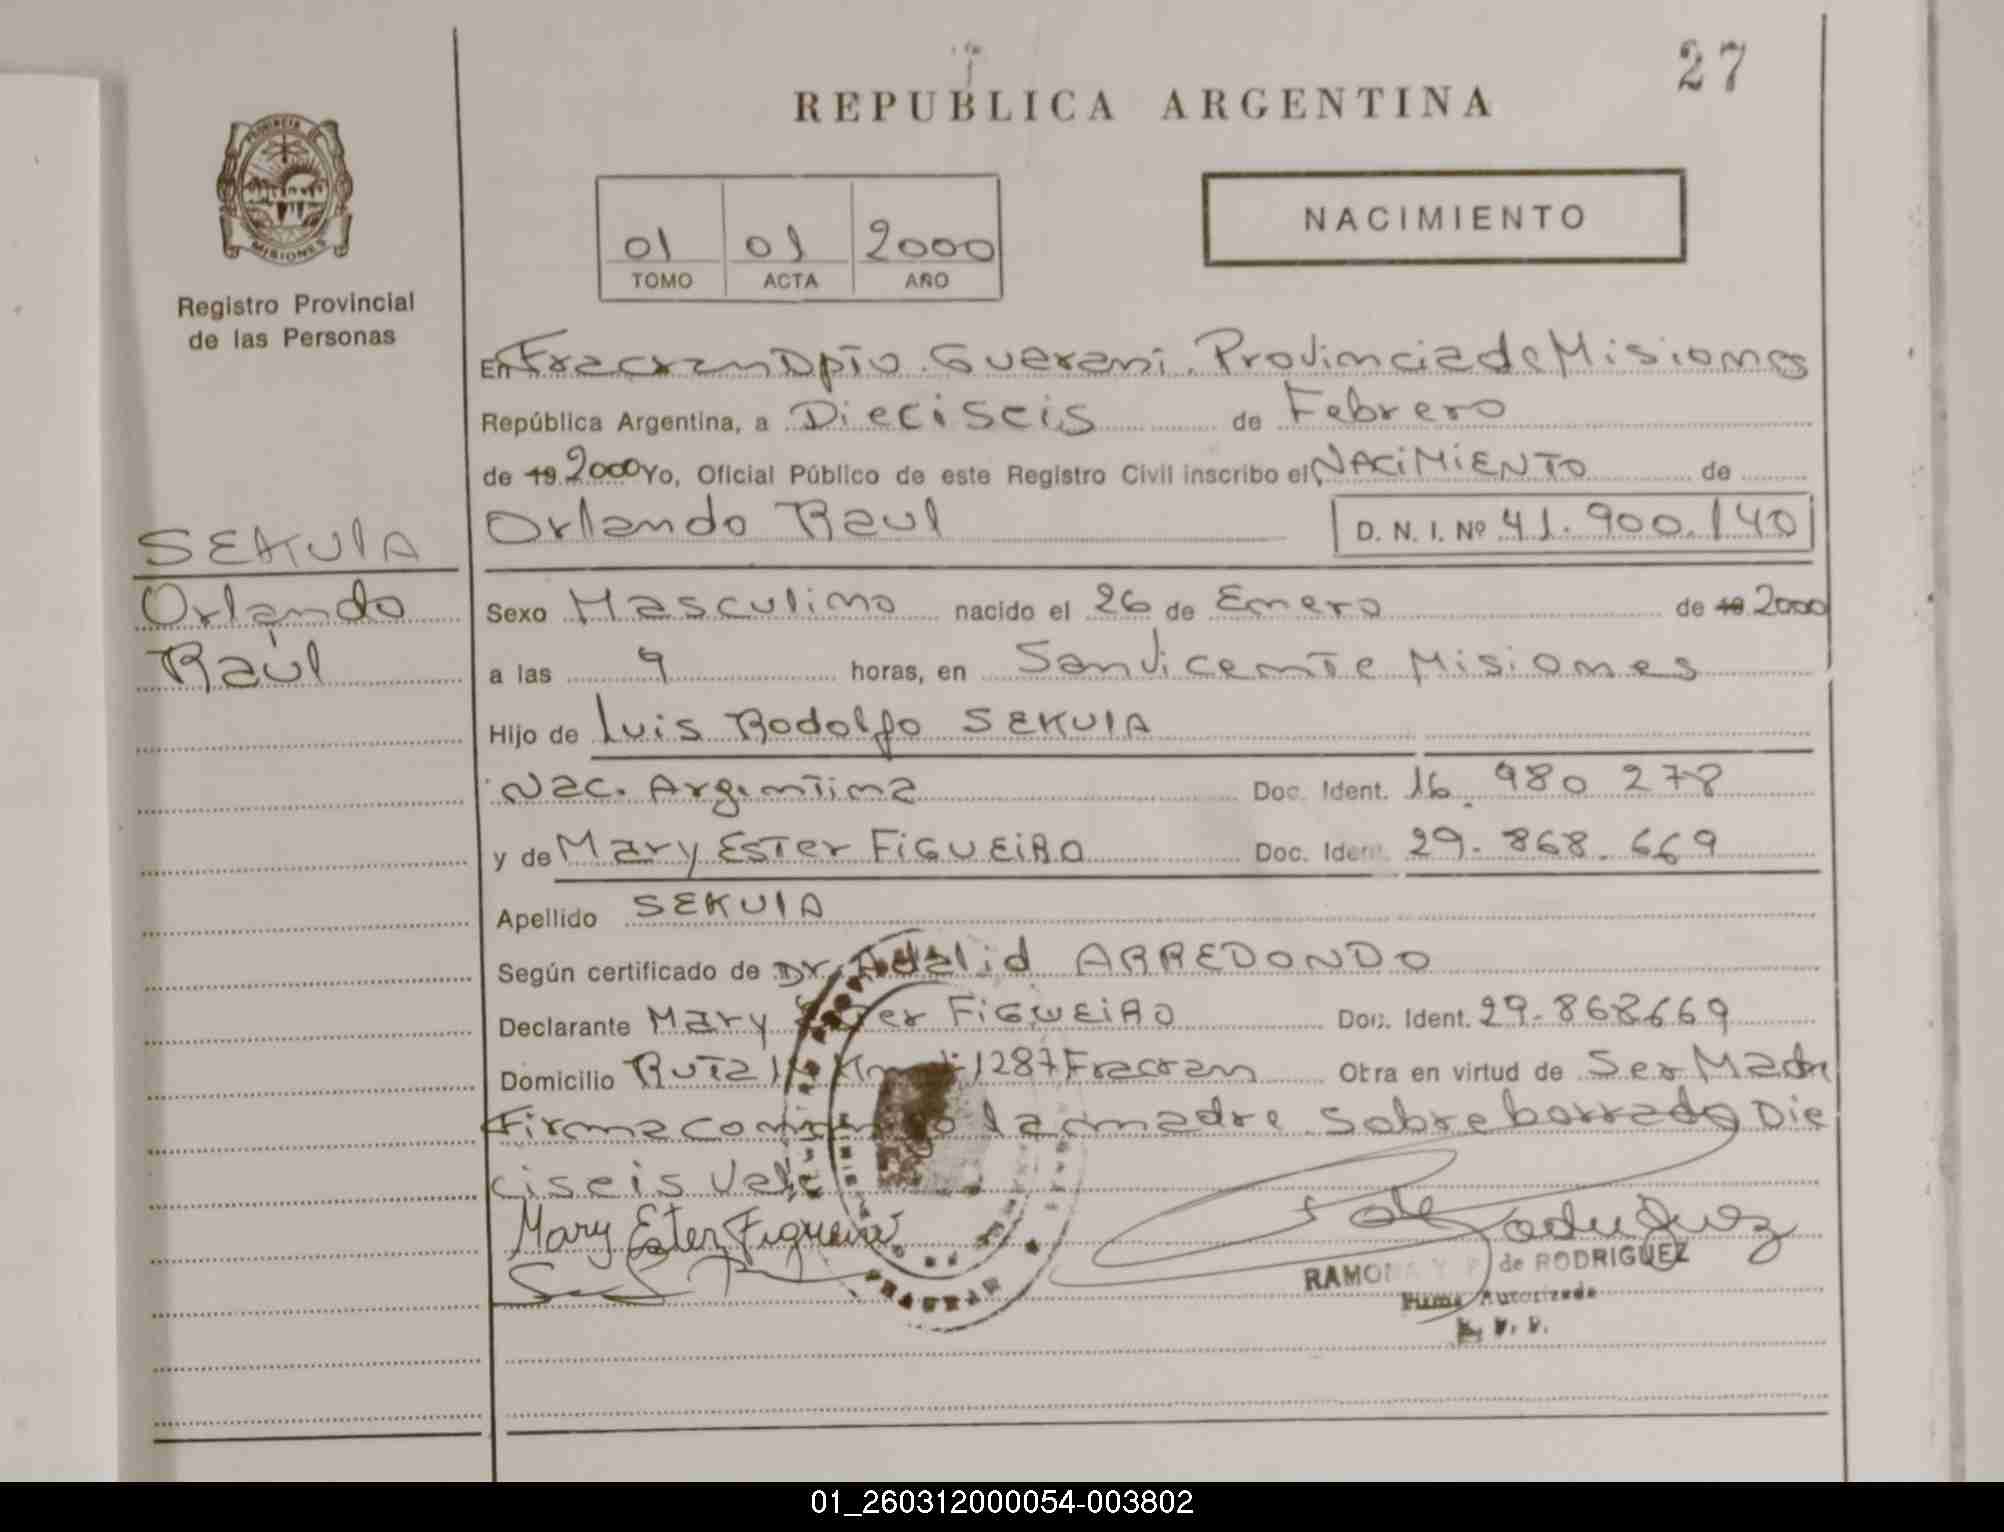 27
REPUBLICA ARGENTINA
PROVINCIA DE
MISIONES
Registro Provincial
de las Personas
01 01 2000
TOMO ACTA AÑO
NACIMIENTO
En Fracran Dpto. Guarani. Provincia de Misiones
República Argentina, a Dieciseis de Febrero
de 19 2000 Yo, Oficial Público de este Registro Civil inscribo el NACIMIENTO de
Orlando Raul D. N. I. Nº 41.900.140
SEKULA
Orlando
Raúl
Sexo Masculino nacido el 26 de Enero de 19 2000
a las 9 horas, en San Vicente Misiones
Hijo de Luis Rodolfo SEKULA
Nac. Argentina Doc. Ident. 16.980 278
y de Mary Ester FiGUEiRO Doc. Ident. 29.868.669
Apellido SEKULA
Según certificado de Dr. Adalid ARREDONDO
Declarante Mary Ester FiGUEiRO Doc. Ident. 29.868669
Domicilio Ruta 14 Km 1287 Fracran Otra en virtud de Ser Madre
Firma la madre. Sobre borrado Die
ciseis Vale
Mary Ester Figueiro
Rodriguez
RAMONA Y. de RODRIGUEZ
Firma Autorizada
01_260312000054-003802